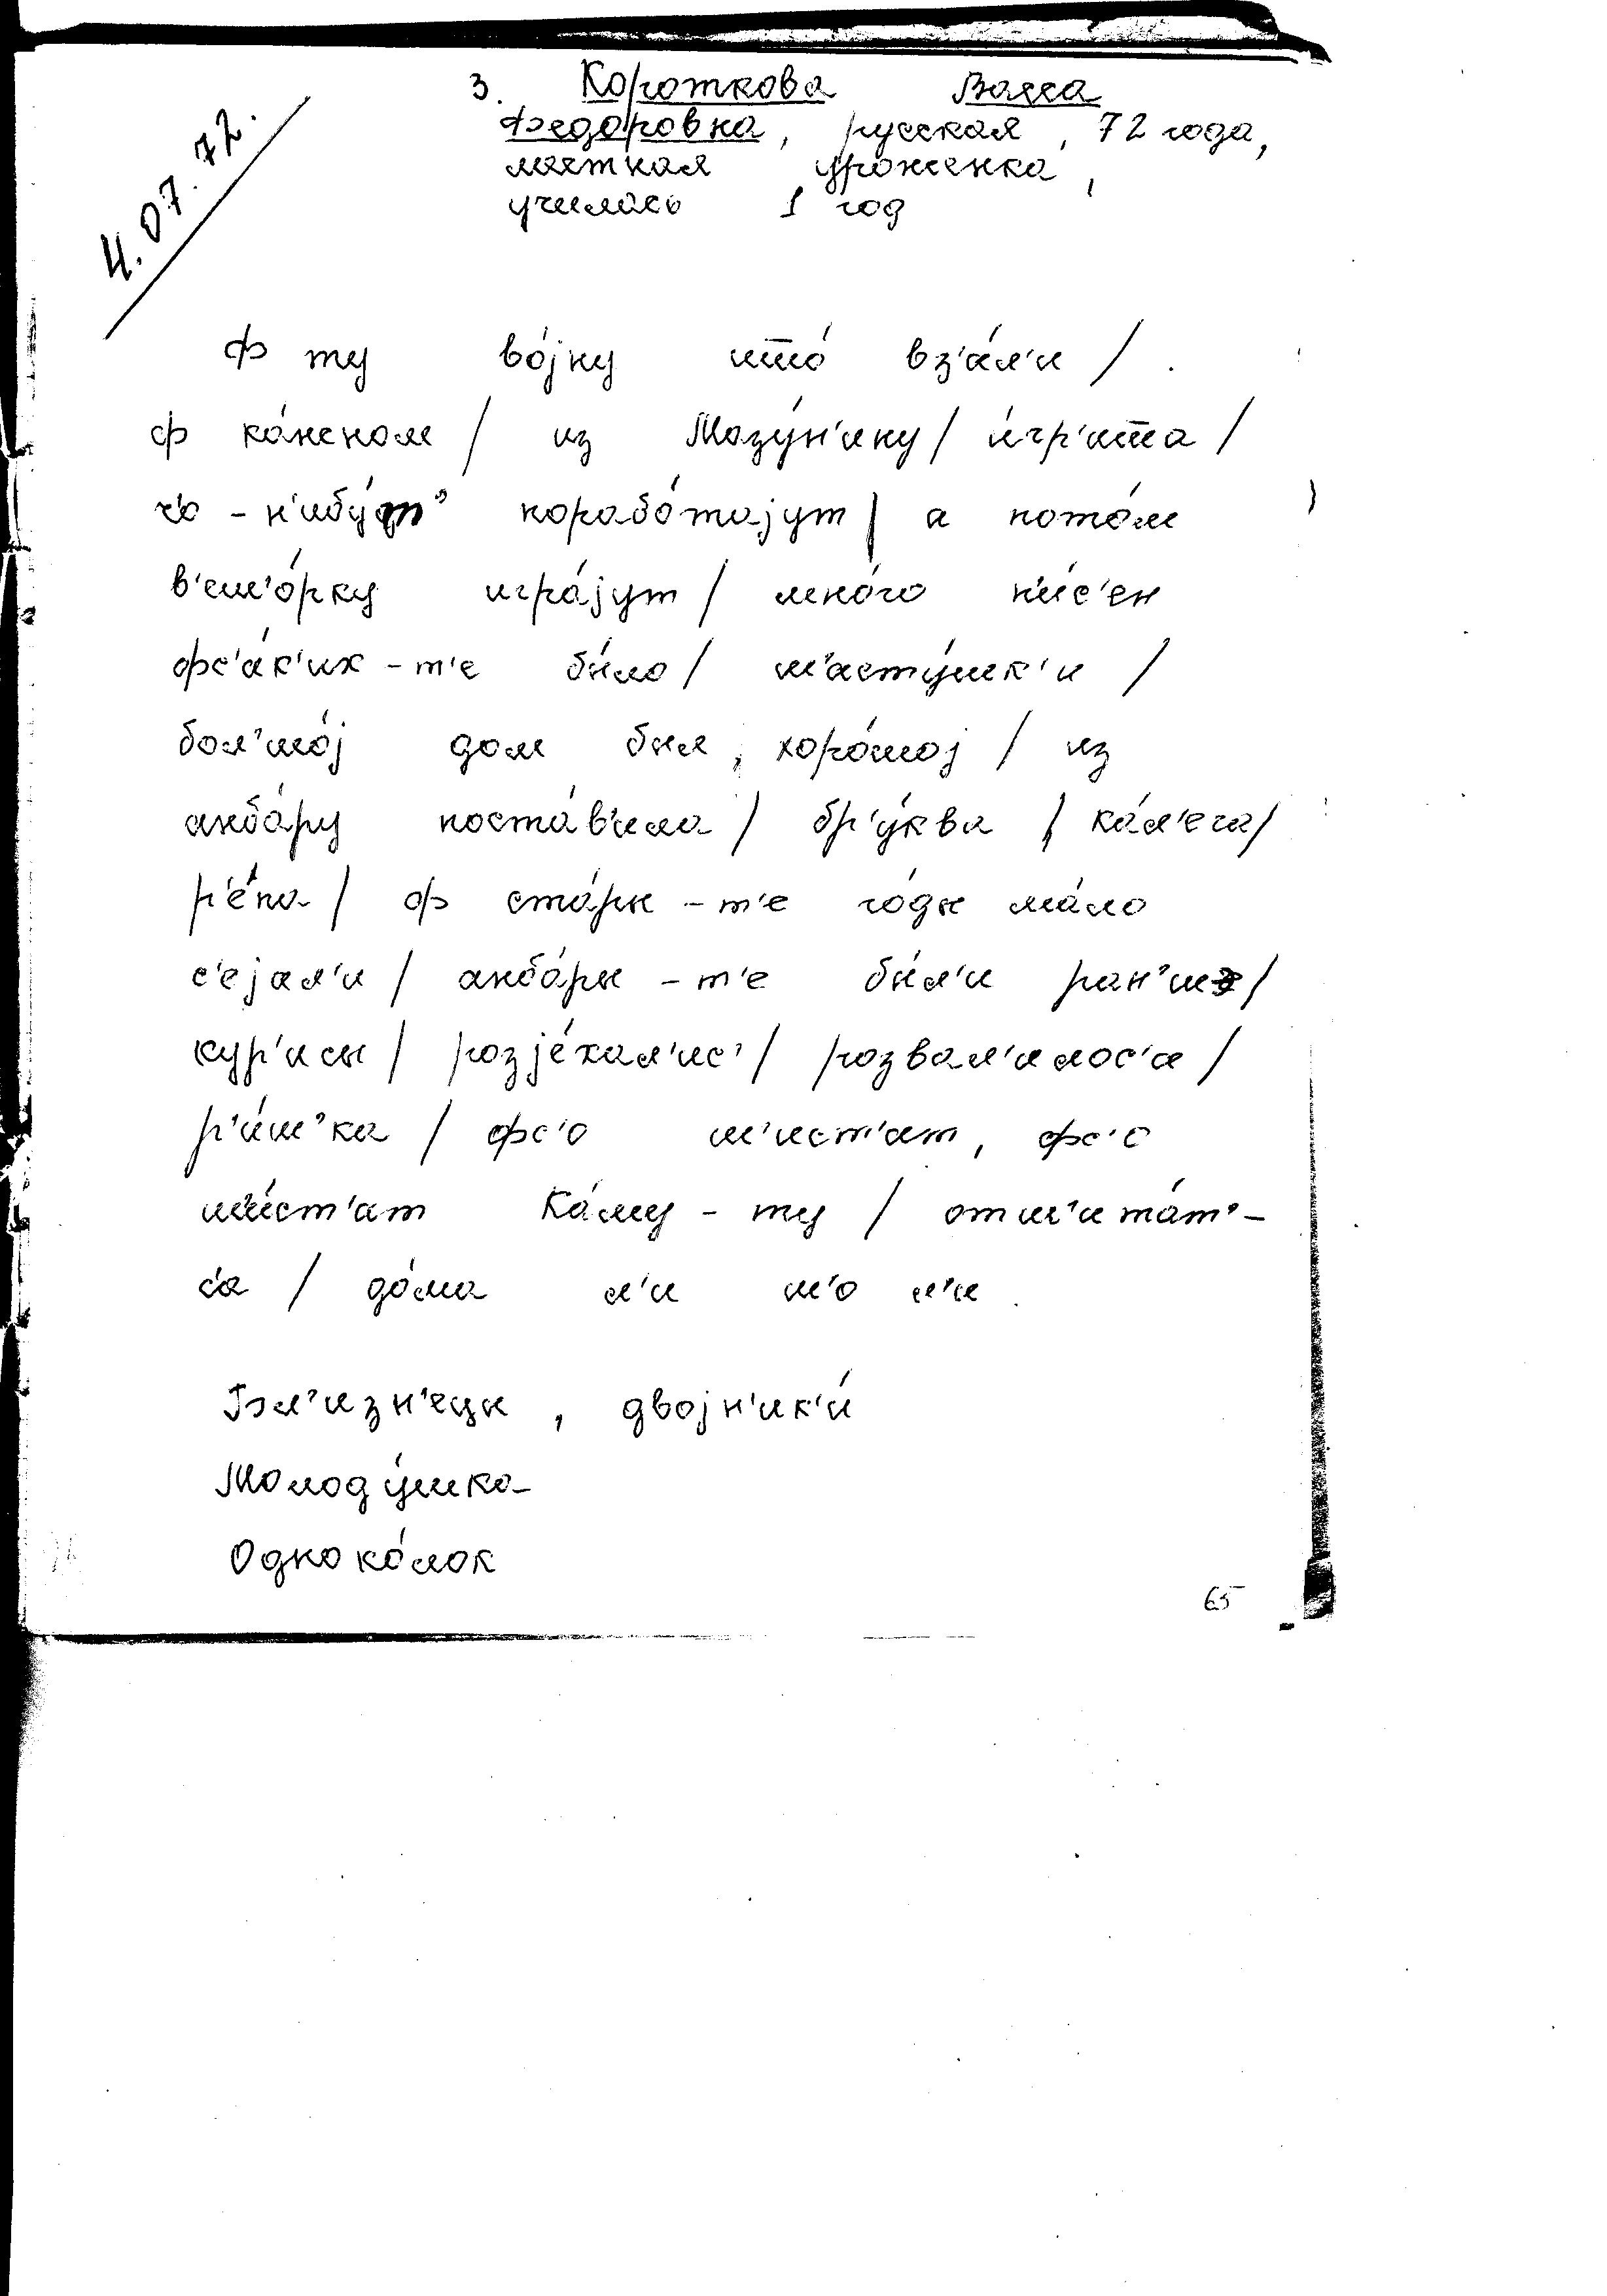 4.07.72.
3. Короткова Васса
Федоровна, русская, 72 года,
местная уроженка,
училась 1 год
Ф ту во́јну што́ вз'а́л'и /
ф ка́жном / из Мазу́н'ину / и́гр'ишша /
ч'о-н'ибу́т' порабо́тајут / а пото́м
в'еш'о́рку игра́јут / мно́го п'и́с'ен
фс'а́к'их-т'е бы́ло / ш'асту́шк'и /
бол'шо́ј дом был, хоро́шој / из
анба́ру поста́в'ила / бр'у́ква / ка́л'ега /
р'е́па / ф ста́ры-т'е го́ды ма́ло
с'е́јал'и / анба́ры-т'е бы́л'и ран'шэ /
кур'исы / розје́хал'ис' / розвал'илос'а /
р'и́ш'ка / фс'о ш'ист'ат, фс'о
ш'и́ст'ат Ка́му-ту / отш'ита́т'-
с'а / до́ма л'и ш'о л'и.
Бл'изн'ецы, двојн'ик'и́
Молоду́шка
Одноко́лок
65